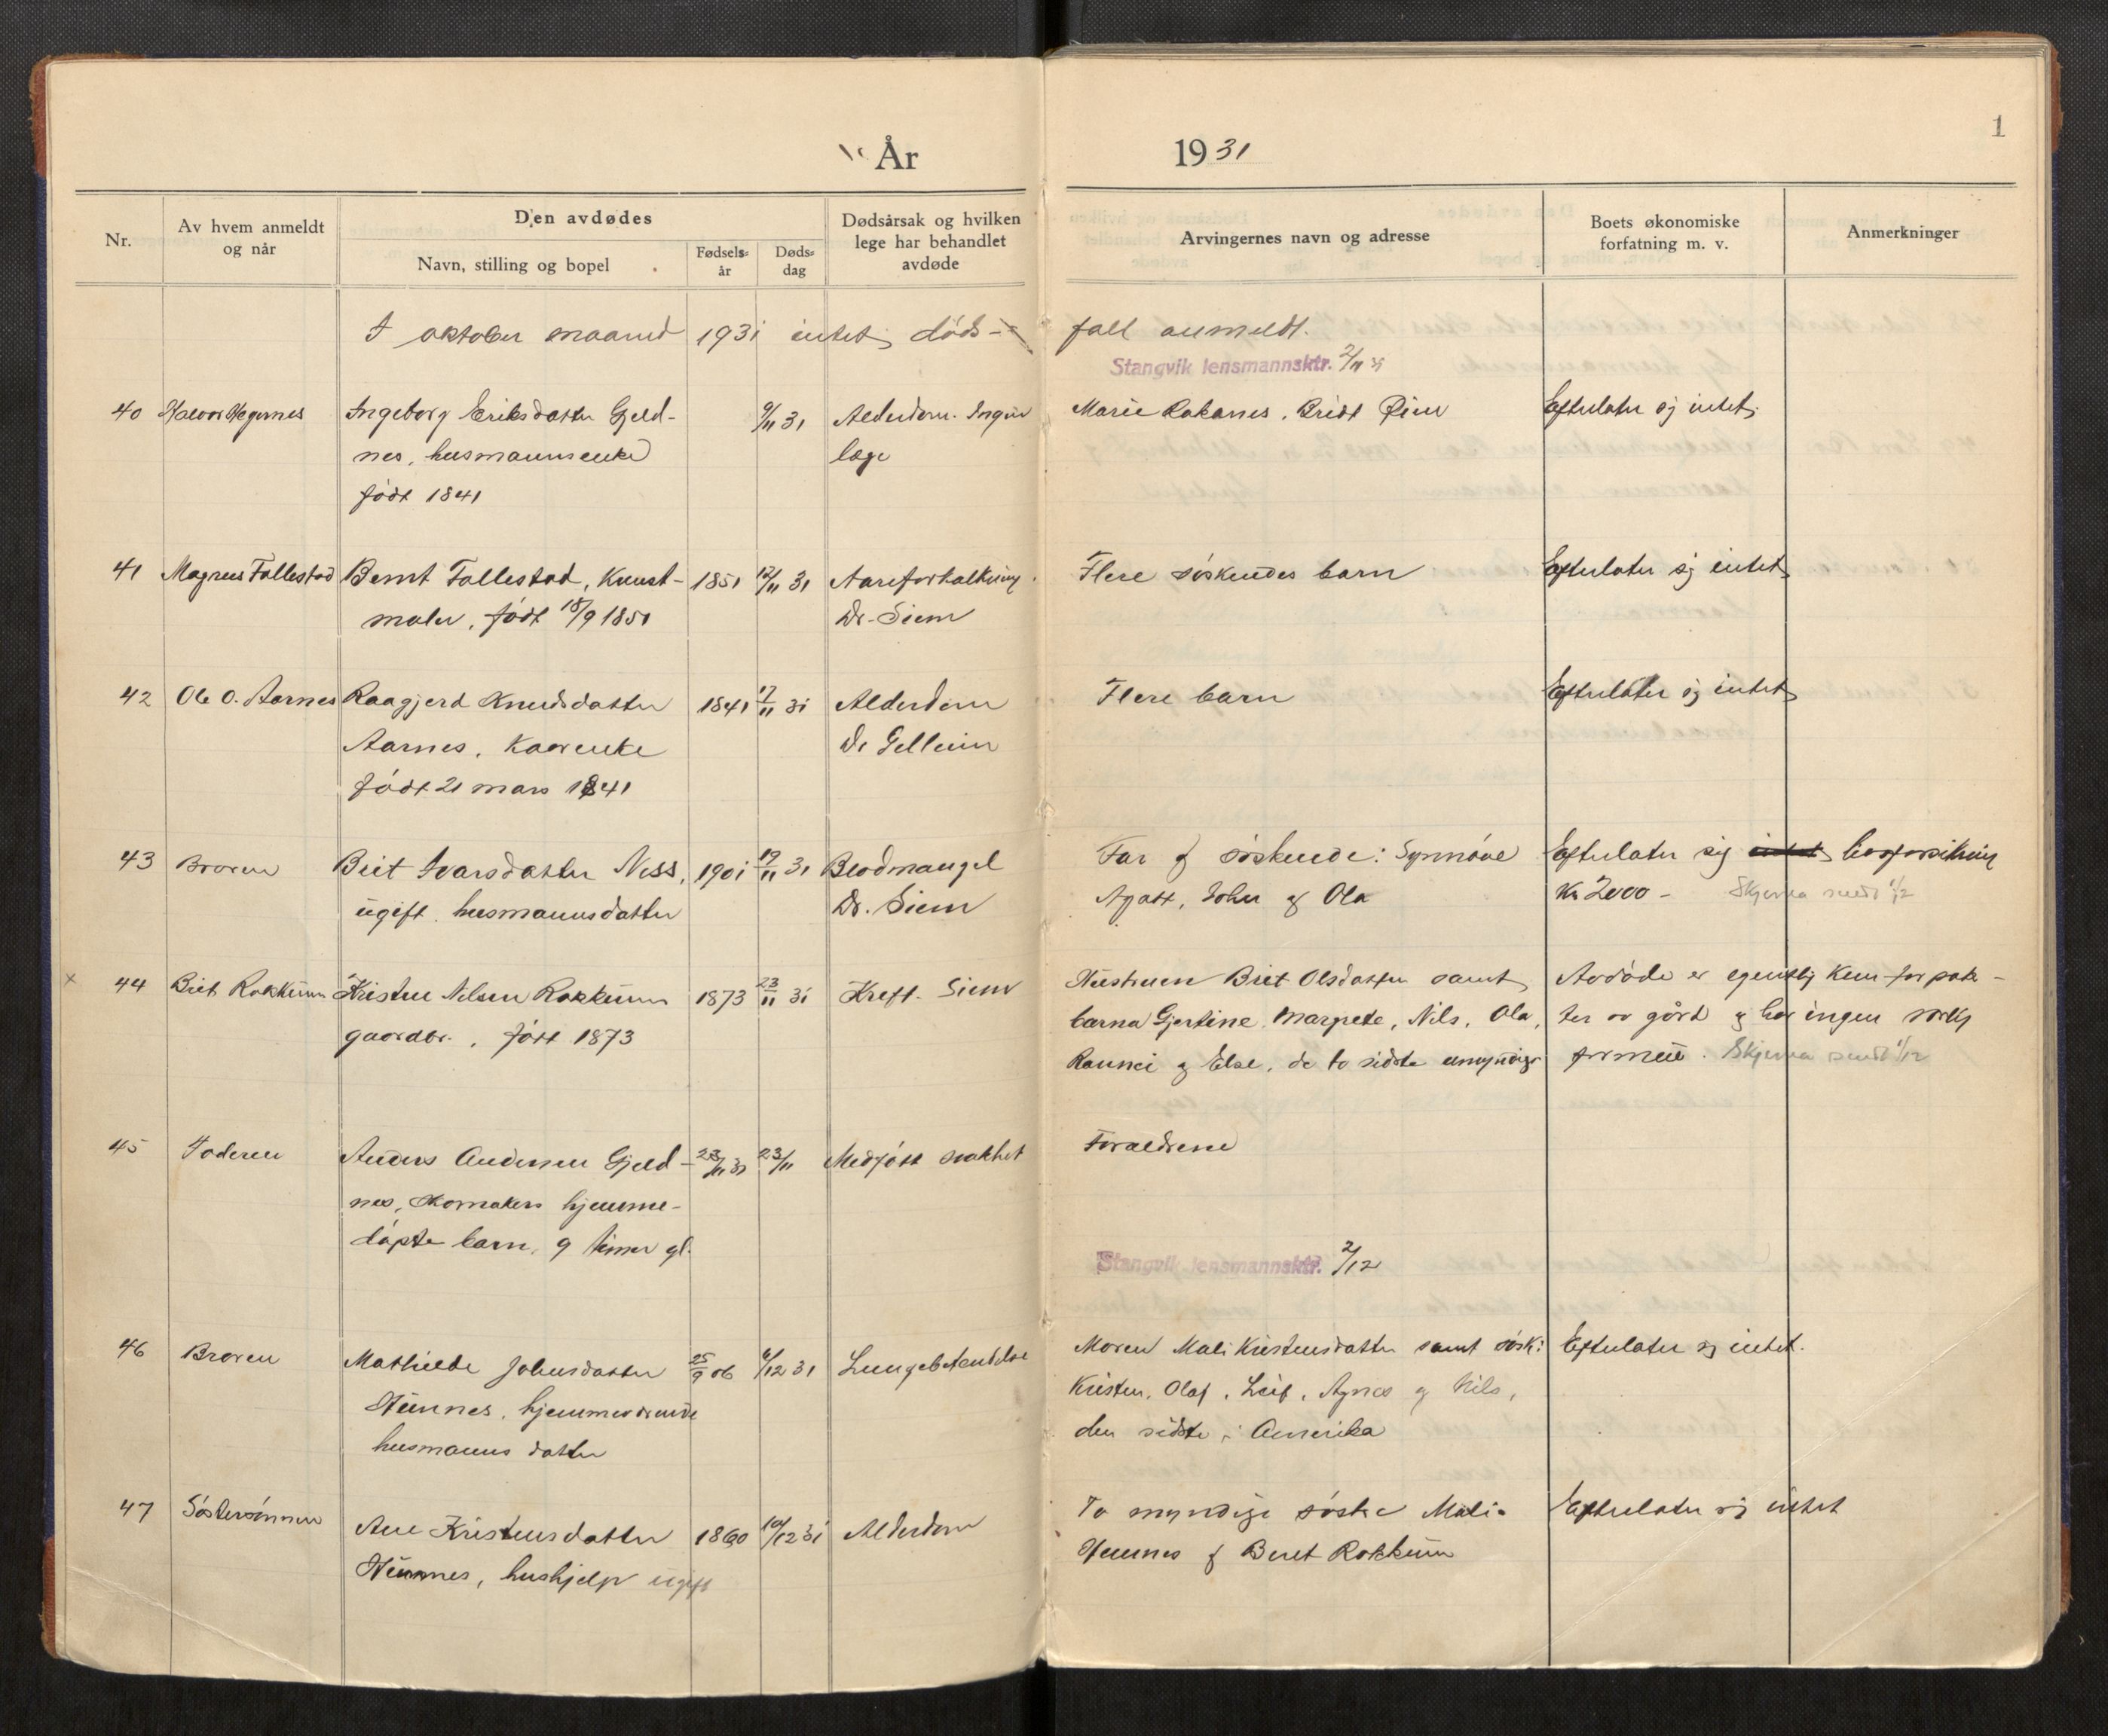 År 1931
1
Nr.
Av hvem anmeldt
og når
Den avdødes
Navn, stilling og bopel
Fødsels=
år
Døds=
dag
Dødsårsak og hvilken
lege har behandlet
avdøde
Arvingernes navn og adresse
Boets økonomiske
forfatning m. v.
Anmerkninger
I oktober maaned 1931 intet døds-
fall anmeldt.
Stangvik lensmannsktr. 2/11 31
40 Halvor Hegernes Ingeborg Eriksdatter Gjeld- 9/11 31 Alderdom. Ingen Marie Rakanes, Bridt Øien Efterlater sj intet.
nes, husmannsenke læge
født 1841
41 Magnus Tallestad Bernt Tallestad, Kunst- 1851 12/11 31 Aareforkalkning. Flere søskendes barn Efterlater sj intet
maler, født 18/9 1851 Dr. Siem
42 Ole O. Aarnes Raagjerd Knudsdatter 1841 17/11 31 Alderdom Flere barn Efterlater sj intet
Aarnes, Kaarenke Dr Gellein
født 21 mars 1841
43 Broren Brit Ivarsdatter Ness, 1901 19/11 31 Blodmangel Far og søskende: Synnøve Efterlater sig intet livsforsikring
ugift husmannsdatter Dr. Siem Agatt, John og Ola Kr 2000 - Skjema sendt 1/12
× 44 Brit Rokkum Kristen Nilsen Rokkum 1873 23/11 31 Kreft. Siem Hustruen Brit Olsdatter samt Avdøde er egentlig kun forpak-
gaardbr., født 1873 barna Gjertine, Margrete, Nils, Ola, ter av gård og har ingen særlig
Rannei og Else, de to sidste umyndige formue. Skjema sendt 1/12
45 Faderen Anders Andersen Gjeld- 23/11 31 23/11 Medfødt svakhet Foraeldrene
nes, skomakers hjemme-
døpte barn, 9 timer gl.
Stangvik lensmannsktr. 2/12
46 Broren Mathilde Johnsdatter 25/9 06 6/12 31 Lungebetendelse Moren Mali Kristensdatter samt søsk: Efterlater sj intet.
Hennes, hjemmeværende Kristen, Olaf, Leif, Agnes og Nils,
husmanns datter den sidste i Amerika
47 Søstersønnen Ane Kristensdatter 1860 10/12 31 Alderdom To myndige søske Mali Efterlater sj intet
Hennes, hushjelp ugift Hennes og Beret Rokkum